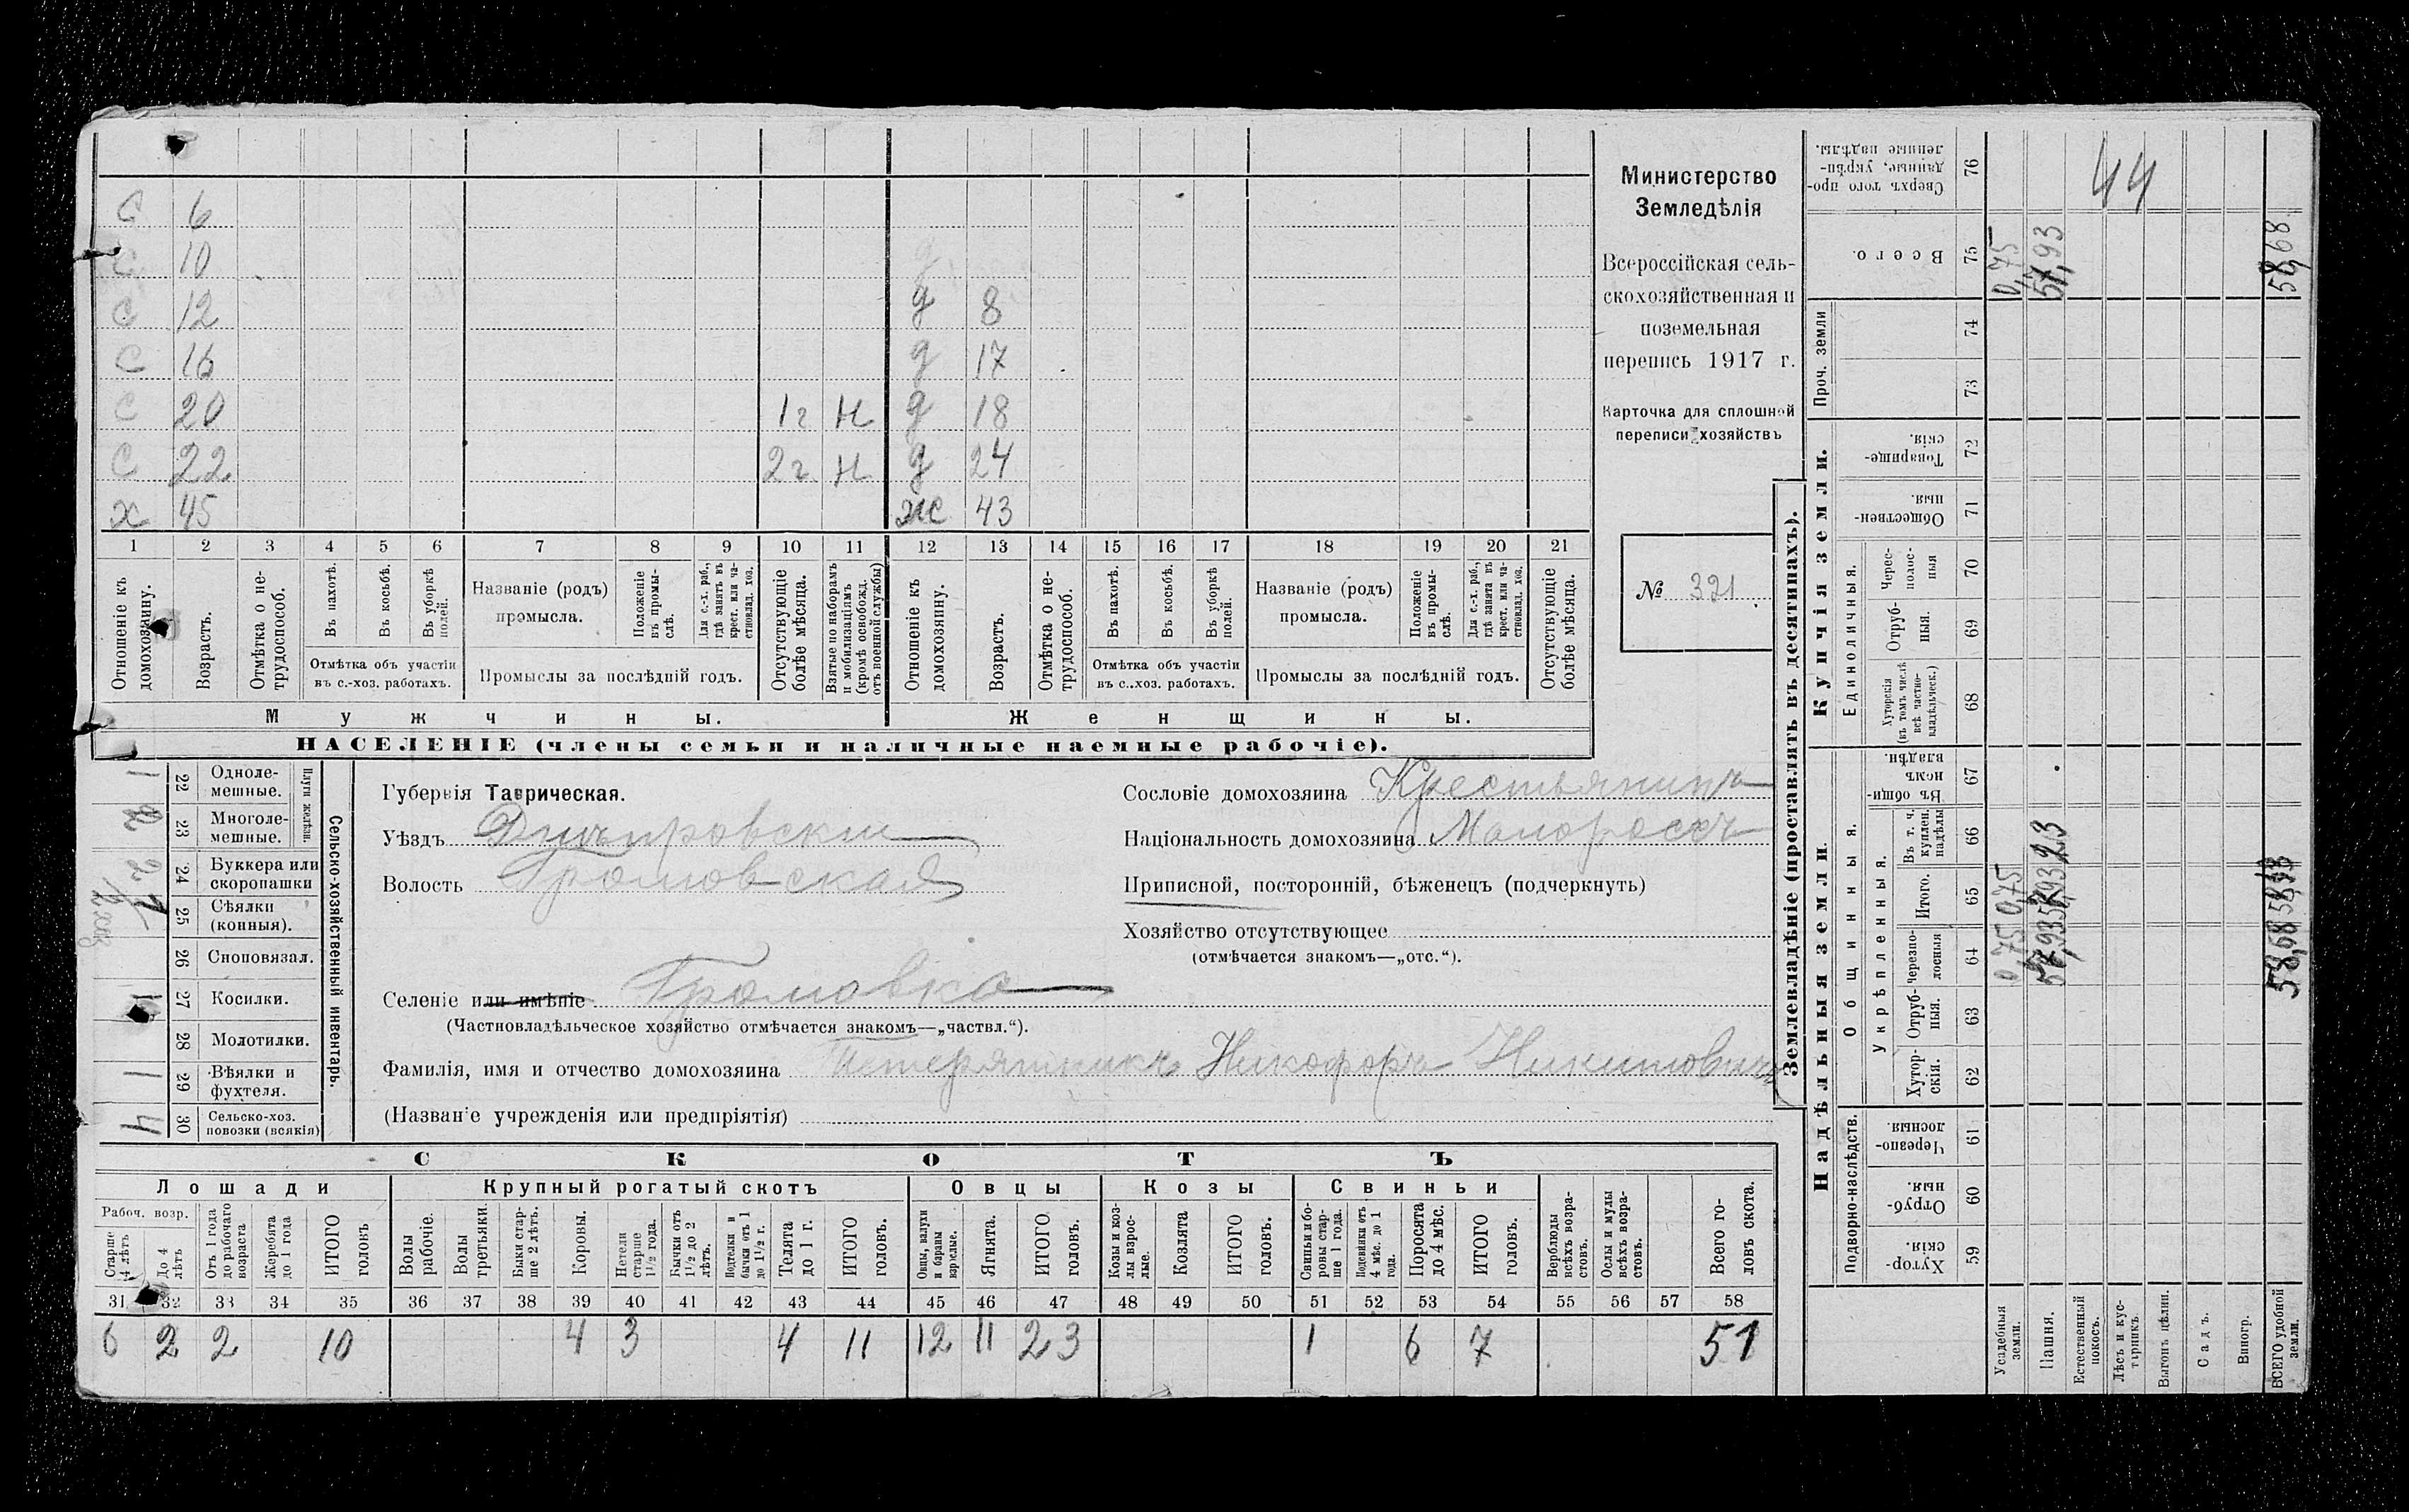 С 6
С 10
С 12 д 8
С 16 д 17
С 20 1 г н д 18
С 22 2 г н д 24
х 45 же 43
1 2 3 4 5 6 7 8 9 10 11 12 13 14 15 16 17 18 19 20 21
Отношеніе къ домохозяину.
Возрастъ.
Отмѣтка о не-трудоспособ.
Въ пахотѣ.
Въ косьбѣ.
Въ уборкѣ полей.
Отмѣтка объ участіи
въ с.-хоз. работахъ.
Названіе (родъ)
промысла.
Положеніе въ промы-слѣ.
Для с.-х. раб., гдѣ занятъ въ крест. или ча-стновлад. хоз.
Промыслы за послѣдній годъ.
Отсутствующіе болѣе мѣсяца.
Взятые по наборамъ и мобилизаціямъ (кромѣ освобожд. отъ военной службы)
Отношеніе къ домохозяину.
Возрастъ.
Отмѣтка о не-трудоспособ.
Въ пахотѣ.
Въ косьбѣ.
Въ уборкѣ полей.
Отмѣтка объ участіи
въ с..хоз. работахъ.
Названіе (родъ)
промысла.
Положеніе въ промы-слѣ.
Для с.-х. раб., гдѣ занята въ крест. или ча-стновлад. хоз.
Промыслы за послѣдній годъ.
Отсутствующіе болѣе мѣсяца.
Мужчины. Женщины.
НАСЕЛЕНІЕ (члены семьи и наличные наемные рабочіе).
Министерство
Земледѣлія
Всероссійская сель-
скохозяйственная и
поземельная
перепись 1917 г.
Карточка для сплошной
переписи хозяйствъ
№ 321
Сельско-хозяйственный инвентарь.
Плуги желѣзн.
22 Одноле-мешные. 1
23 Многоле-мешные. 2
24 Буккера или скоропашки
25 Сѣялки (конныя). 1
26 Сноповязал.
27 Косилки. 1
28 Молотилки.
29 Вѣялки и фухтеля. 1
30 Сельско-хоз. повозки (всякія) 4
Губернія Таврическая.
Уѣздъ Днѣпровскій
Волость Громовская
Селеніе или имѣніе Громовка
(Частновладѣльческое хозяйство отмѣчается знакомъ—„частвл.“).
Фамилія, имя и отчество домохозяина Никофоръ Никитовичъ
(Названіе учрежденія или предпріятія)
Сословіе домохозяина Крестьянинъ
Національность домохозяина Малороссъ
Приписной, посторонній, бѣженецъ (подчеркнуть)
Хозяйство отсутствующее
(отмѣчается знакомъ—„отс.“).
СКОТЪ
Лошади Крупный рогатый скотъ Овцы Козы Свиньи
Рабоч. возр.
Старше 4 лѣтъ
До 4 лѣтъ
Отъ 1 года до рабочаго возраста
Жеребята до 1 года
ИТОГО головъ
Волы рабочіе.
Волы третьяки.
Быки стар-ше 2 лѣтъ.
Коровы.
Нетели старше 1½ года.
Бычки отъ 1½ до 2 лѣтъ.
Подтелки и бычки отъ 1 до 1½ г.
Телята до 1 г.
ИТОГО головъ.
Овцы, валухи и бараны взрослые.
Ягнята.
ИТОГО головъ.
Козы и коз-лы взрос-лые.
Козлята
ИТОГО головъ.
Свиньи и бо-ровы стар-ше 1 года.
Подсвинки отъ 4 мѣс. до 1 года.
Поросята до 4 мѣс.
ИТОГО головъ.
Верблюды всѣхъ возра-стовъ.
Ослы и мулы всѣхъ возра-стовъ.
Всего го-ловъ скота.
31 32 33 34 35 36 37 38 39 40 41 42 43 44 45 46 47 48 49 50 51 52 53 54 55 56 57 58
6 2 2 10 4 3 4 11 12 11 23 1 6 7 51
Землевладѣніе (проставлять въ десятинахъ).
Надѣльныя земли. Купчія земли. Проч. земли
Подворно-наслѣдств. Общинныя. Укрѣпленныя. Единоличныя.
59 Хутор-скія.
60 Отруб-ныя.
61 Черезпо-лосныя.
62 Хутор-скія.
63 Отруб-ныя.
64 Черезпо-лосныя
65 Итого.
66 Въ т. ч. куплен. надѣлы
67 Въ общин-номъ владѣн.
68 Хуторскія (въ томъ числѣ всѣ частно-владѣльческ.)
69 Отруб-ныя.
70 Черес-полос-ныя
71 Обществен-ныя.
72 Товарище-скія.
73
74
75 Всего.
76 Сверхъ того про-данные, укрѣп-ленные надѣлы.
Усадебныя земли. 0,75 0,75 0,75
Пашня. 57,93
Естественный покосъ.
Лѣсъ и кус-тарникъ.
44
Выгонъ цѣлин.
Садъ.
Виногр.
ВСЕГО удобной земли. 58,68 58,68